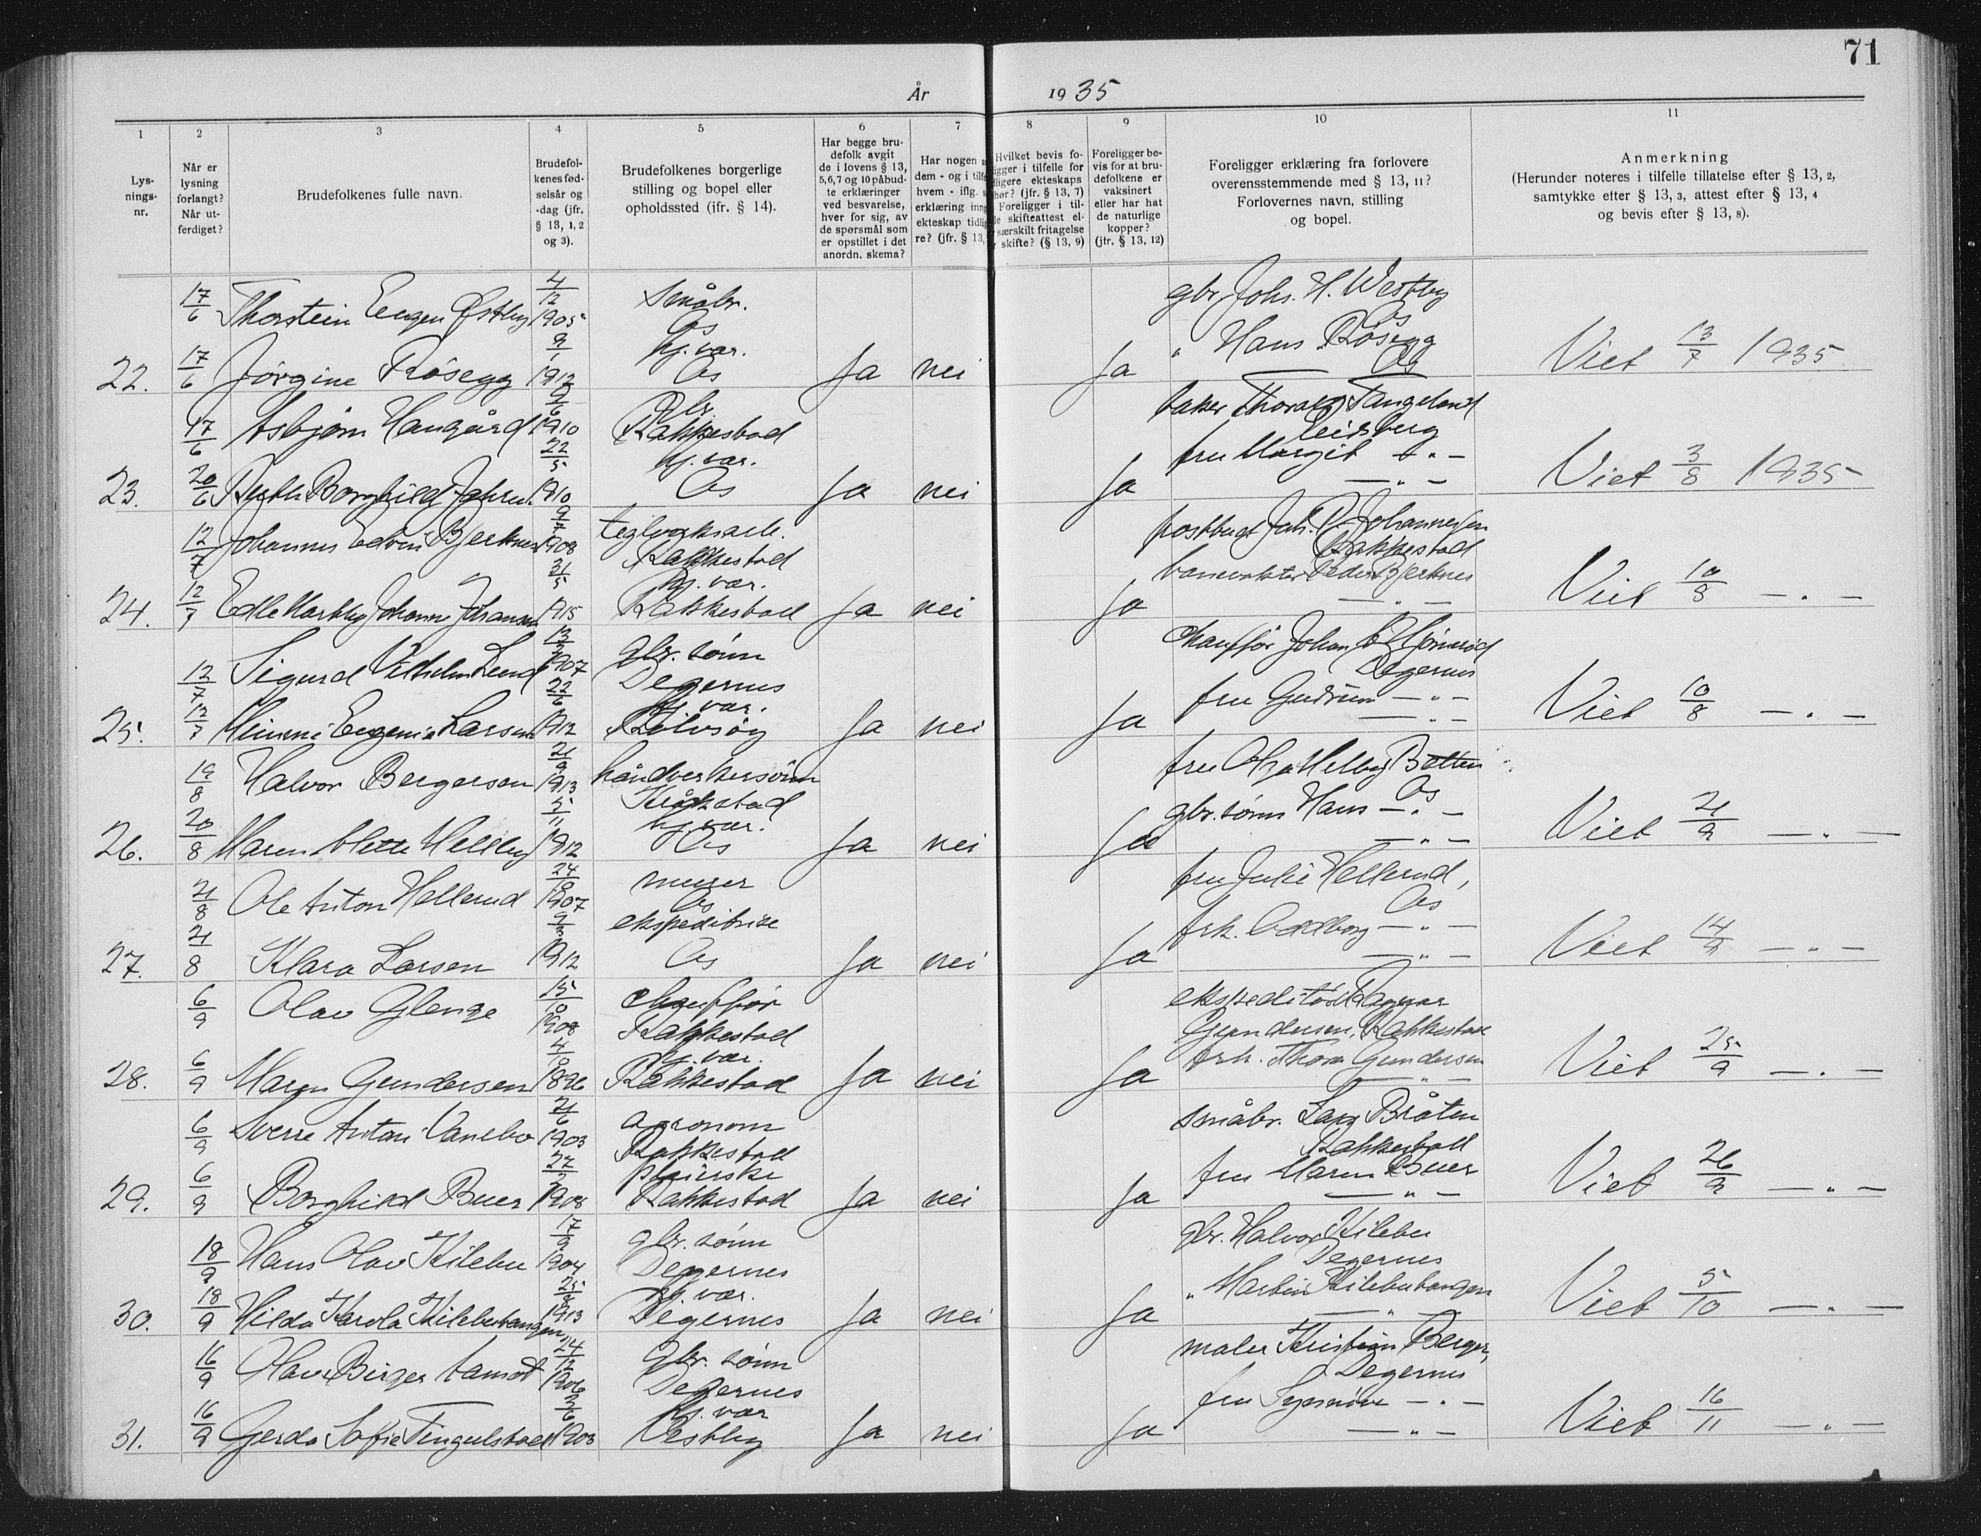 71
År 1935
1 2 3 4 5 6 7 8 9 10 11
Lys-
nings-
nr.
Når er
lysning
forlangt?
Når ut-
ferdiget?
Brudefolkenes fulle navn.
Brudefol-
kenes fød-
selsår og
-dag (jfr.
§ 13, 1, 2
og 3).
Brudefolkenes borgerlige
stilling og bopel eller
opholdssted (ifr. § 14).
Har begge bru-
defolk avgit
de i lovens § 13,
5,6,7 og 10 påbud-
te erklæringer
ved besvarelse,
hver for sig, av
de spørsmål som
er opstillet i det
anordn. skema?
Har nogen
dem - og i tilf
hvem - iflg.
erklæring inng
ekteskap tidlig
re? (jfr. § 13,
Hvilket bevis fo-
ligger i tilfelle for
ekteskaps
(jfr. § 13, 7)
Foreligger i til-
skifteattest el-
særskilt fritagelse
skifte? (§ 13, 9)
Foreligger be-
vis for at bru-
defolkene er
vaksinert
eller har hat
de naturlige
kopper?
(jfr. § 13, 12)
Foreligger erklæring fra forlovere
overensstemmende med § 13, 11?
Forlovernes navn, stilling
og bopel.
Anmerkning
(Herunder noteres i tilfelle tillatelse efter § 13, 2,
samtykke efter § 13, 3, attest efter § 13, 4
og bevis efter § 13, 8).
17/6 Thorstein Eugen Østby 4/12 1905 småbr. Ås gbr. Johs. H. Westby Ås
22. 17/6 Jørgine Røsegg 9/1 1912 hj. vær. Ås Ja nei Ja " Hans Røsegg Ås Viet 13/7 1935
17/6 Asbjørn Haugård 1910 gbr. Rakkestad baker Tangeland Eidsberg
23. 20/6 Ruth Borghild 22/5 1910 hj. vær. Ås Ja nei Ja fru Margit -"- Viet 3/8 1935
12/7 Johannes Edvin Bjerknes 9/7 1908 teglverksarb. Rakkestad postbud Joh. Johannesen Rakkestad
24. 12/7 Johanne Johansen 31/5 1915 hj. vær. Rakkestad Ja nei Ja Peder Bjerknes -"- Viet 10/8 -"-
12/7 Sigurd Vilhelm Lund 1907 gbr. sønn Degernes chauffør Johan Degernes
25. 12/7 Minni Eugenie Larsen 22/6 1912 hj. vær. Rolvsøy Ja nei Ja fru Gudrun -"- Viet 10/8 -"-
19/8 Halvor Bergersen 1913 håndverkersønn Kråkstad fru Olga Melby Botten Ås
26. 20/8 Maren Mette Melby 5/11 1912 hj. vær. Ås Ja nei Ja gbr. sønn Hans -"- Viet 21/9 -"-
21/8 Ole Anton Hellerud 24/10 1907 murer Ås fru Julie Hellerud, Ås
27. 21/8 Klara Larsen 1912 ekspeditrise Ås Ja nei Ja frk. -"- Viet 14/9 -"-
6/9 Olav Glenge 15/10 1908 chauffør Rakkestad ekspeditør Ragnar Gundersen, Rakkestad
28. 6/9 Maren Gundersen 4/10 1896 hj. vær. Rakkestad Ja nei Ja frk. Thora Gundersen -"- Viet 25/9 -"-
6/9 Sverre Anton Vanebo 21/6 1903 agronom Rakkestad småbr. Lars Bråten Rakkestad
29. 6/9 Borghild Buer 1908 pleierske Rakkestad Ja nei Ja fru Maren Buer -"- Viet 26/9 -"-
18/9 Hans Olav Kilebu 17/9 1904 gbr. sønn Degernes gbr. Halvor Kilebu Degernes
30. 18/9 Hilda Karola Kilebutangen 1913 hj. vær. Degernes Ja nei Ja " Martin Kilebutangen -"- Viet 5/10 -"-
16/9 Olav Birger 24/12 1906 gbr. sønn Degernes maler Kristian Berger, Degernes
31. 16/9 Gerda Sofie Tingulstad 1903 hj. vær Vestby Ja nei Ja fru -"- Viet 16/11 -"-